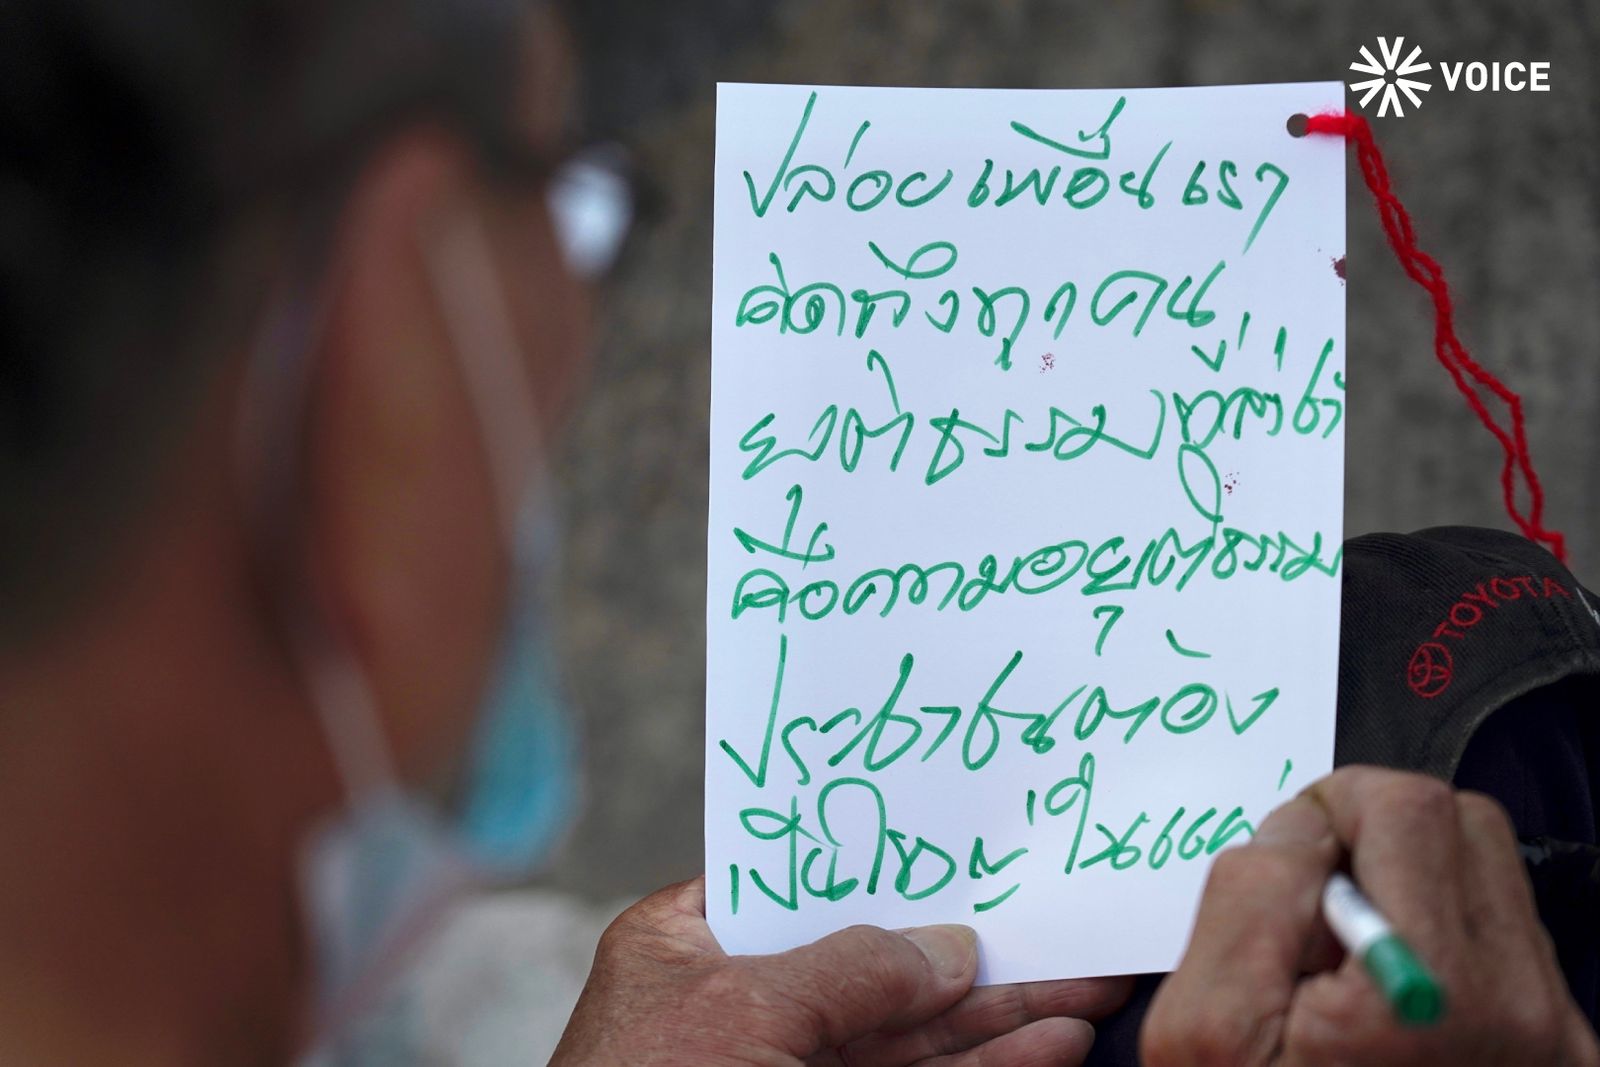 VOICE
ปล่อยเพื่อนเรา
คิดถึงทุกคน
ยุติธรรมที่ล่าช้า
คือความอยุติธรรม
ประชาชนต้อง
เป็นใหญ่ในแผ่
TOYOTA